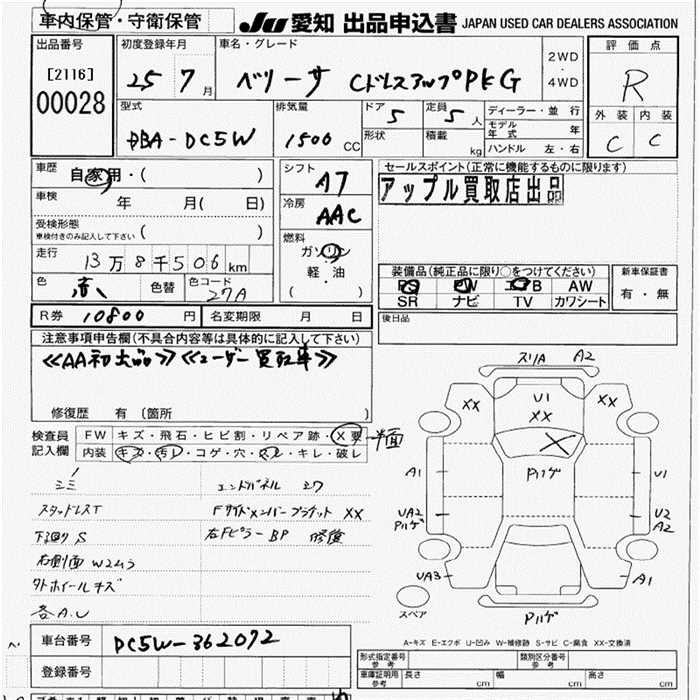 車内保管・守衛保管
JU 愛知 出品申込書 JAPAN USED CAR DEALERS ASSOCIATION
出品番号 初度登録年月 車名・グレード 評価点
[2116] 25 7月 ベリーサ CドレスアップPKG 2WD・4WD R
00028
型式 排気量 ドア 5 定員 5人 ディーラー・並 行 外装 内装
DBA-DC5W 1500 CC 形状 積載 kg モデル年式 年 C C
ハンドル 左・右
車歴 自家用・( ) シフト セールスポイント(正常に機能するものに限ります)
A7 アップル買取店出品
車検 年 月( 日) 冷房
AAC
受検形態
車検付きのみ記入して下さい ( ) 燃料
ガソリン
走行 13万8千506km 軽・油
( )
装備品(純正品に限り○をつけてください) 新車保証書
色 赤 色替 色コード 27A PS PW エアB AW 有・無
SR ナビ TV カワシート
R券 10800円 名変期限 月 日 後日品
注意事項申告欄(不具合内容等は具体的に記入して下さい)
≪AA初出品≫≪ユーザー買取車≫
修復歴 有 (箇所 )
検査員 FW キズ・飛石・ヒビ割・リペア跡・X要
記入欄 内装 キズ・汚レ・コゲ・穴・スレ・キレ・破レ
エンドパネル シワ
スタッドレスT Fサイドメンバーブラケット XX
下回り S 右Fピラー BP 修復
右側面 W2ムラ
外ホイールキズ
各A.U
A2
XX U1 XX XX
X
A1 Pハゲ U1
UA2 Pハゲ U2 A2
UA3 A1
スペア Pハゲ
A-キズ E-エクボ U-凹み W-補修跡 S-サビ C-腐食 XX-交換済
車台番号 DC5W-362072
登録番号
形式指定番号 参考 類別区分番号 参考
車庫証明用 参考 長さ cm 幅 cm 高さ cm